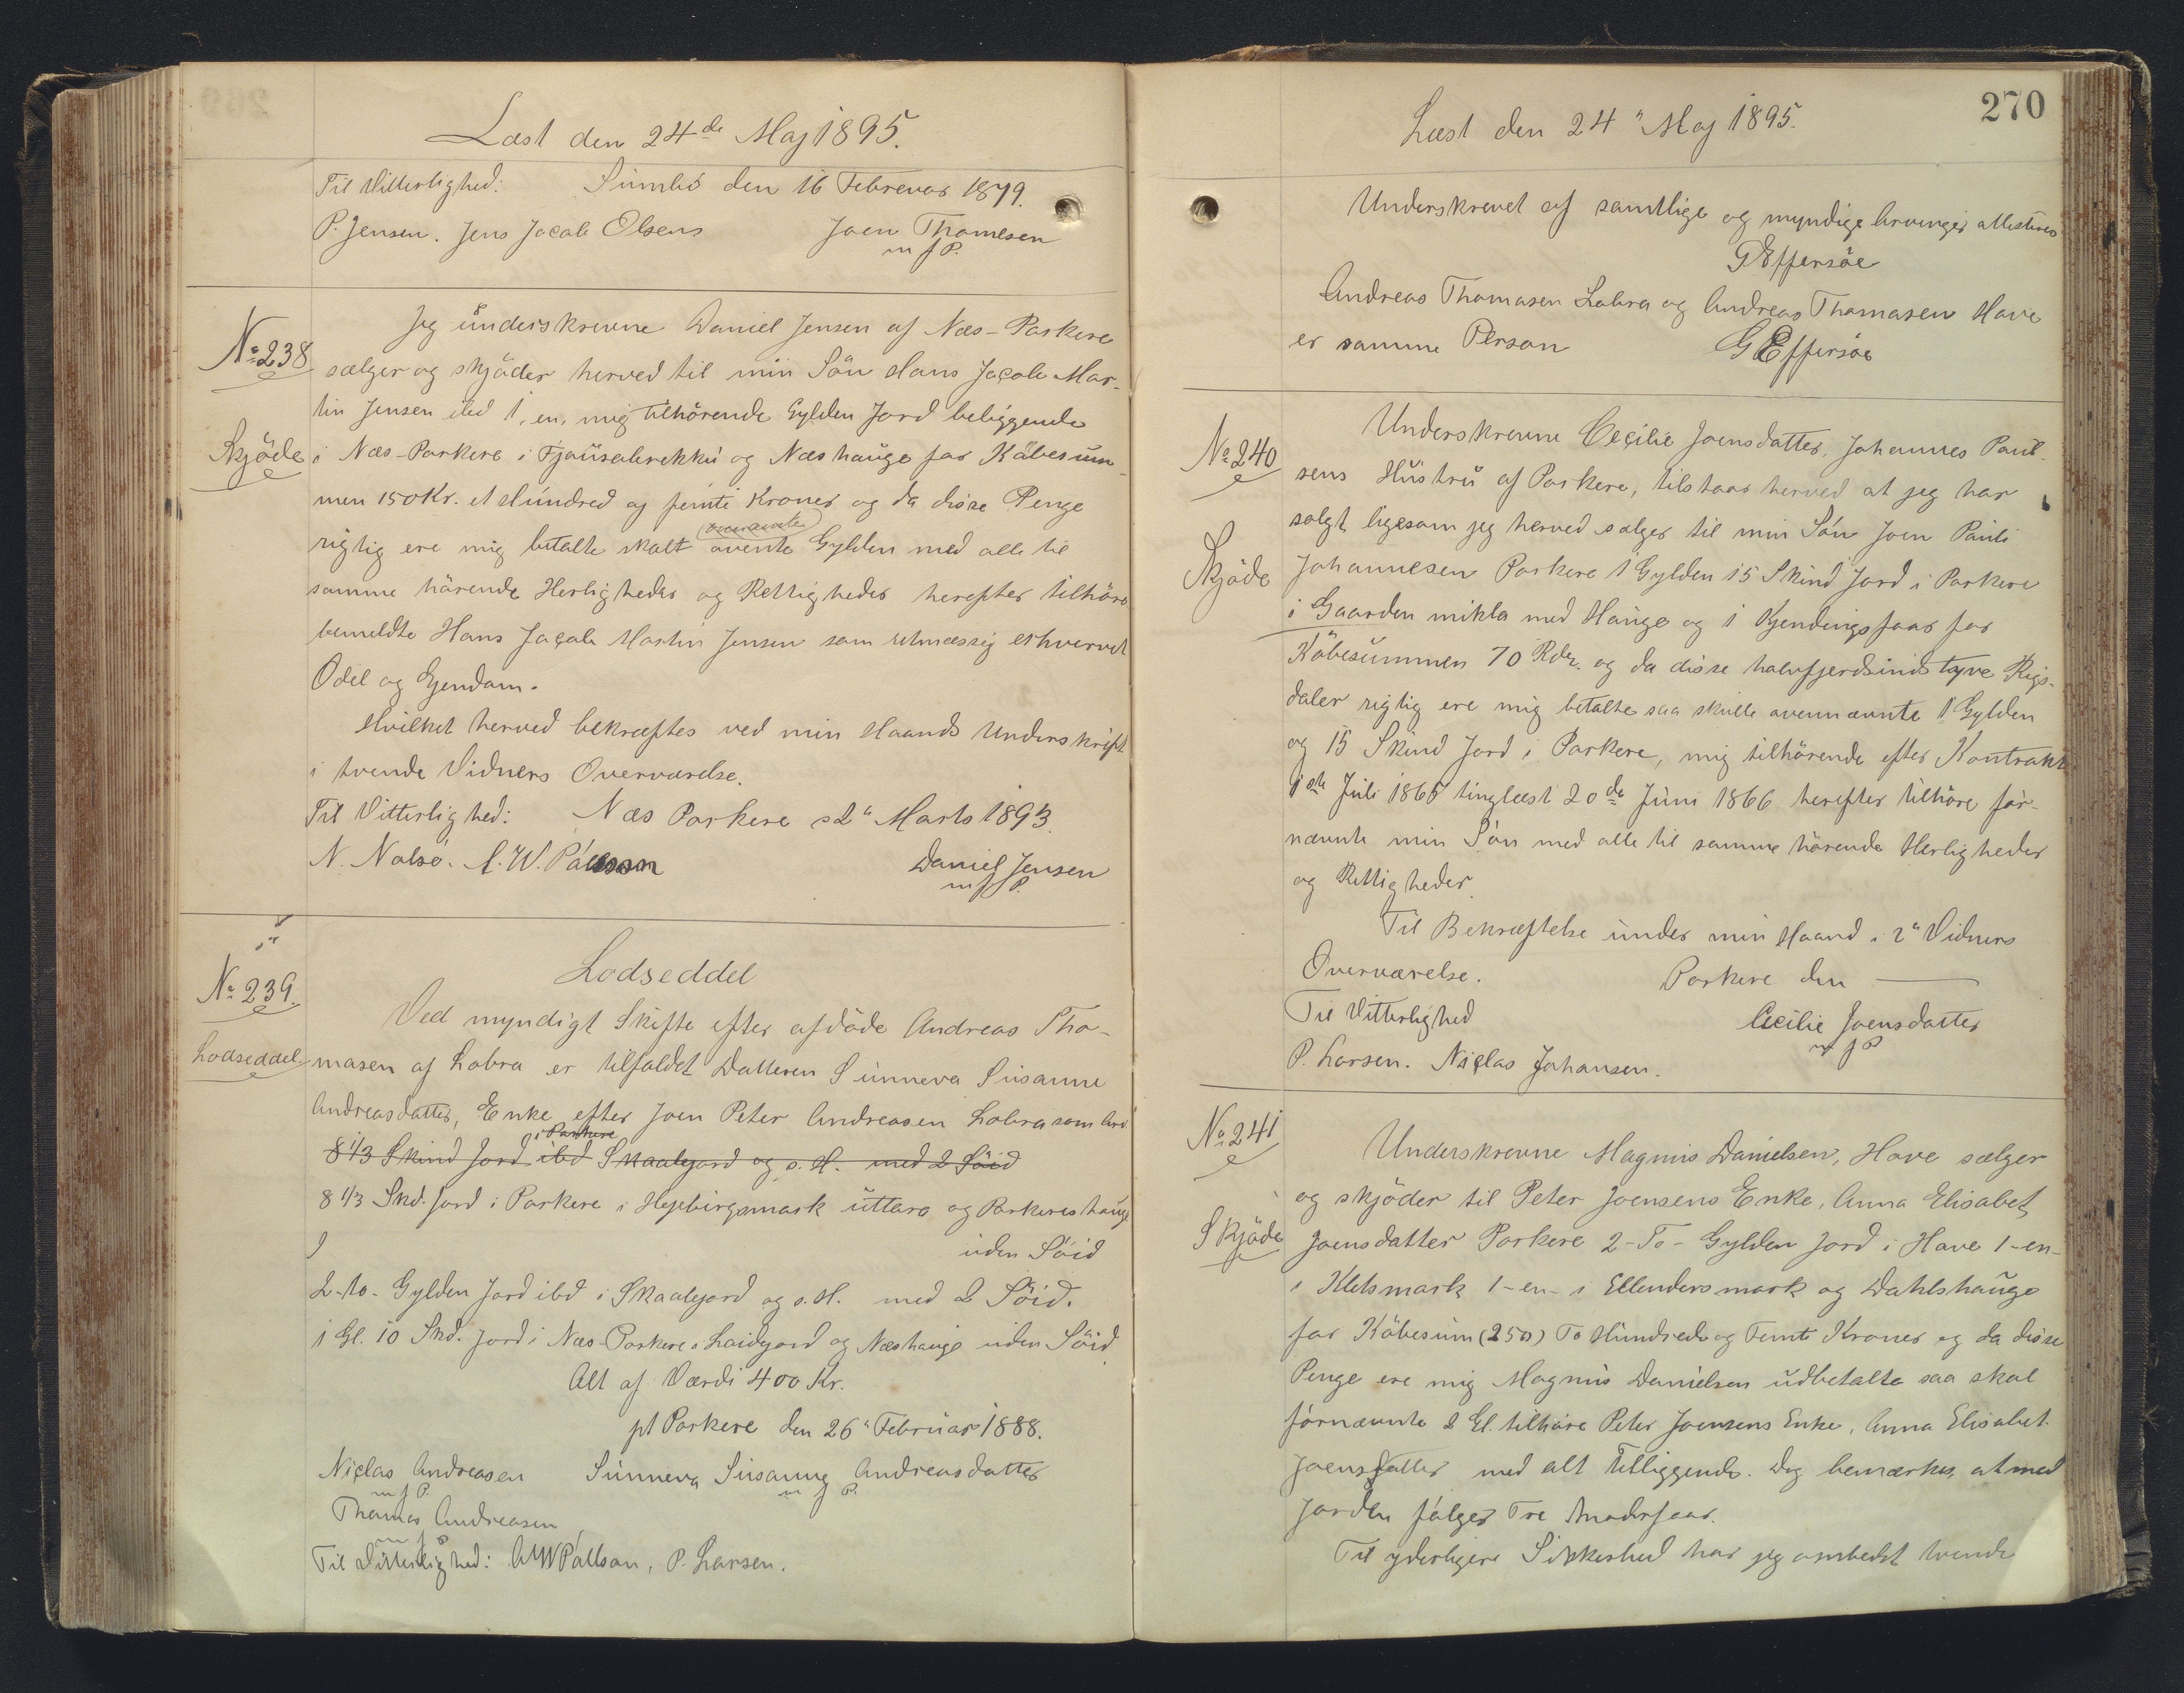 Læst den 24de Maj 1895.
Til Vitterlighed: Sumbö den 16 Februar 1879.
P. Jensen. Jens Jacob Olsens Joen Thomesen
m f P.
No 238
Skjöde
Jeg underskrevne Daniel Jensen af Næs-Porkere
sælger og skjöder herved til min Sön Hans Jacob Mar-
tin Jensen ibd 1, en, mig tilhörende Gylden Jord beliggende
i Næs-Porkere i Fjøusabrekku og Næs hauge for Köbesum-
men 150 Kr. et Hundred og femti Kroner og da disse Penge
rigtig ere mig betalte skalt ovente Gylden med alle til
samme hörende Herligheder og Rettigheder herefter tilhöre
bemeldte Hans Jacob Martin Jensen som retmæssig erhvervet
Odel og Ejendom.
Hvilket herved bekræftes ved min Haands Underskrift
i tvende Vidners Overværelse.
Til Vitterlighed: Næs Porkere Marts 1893.
N. Nolsö. A. W. Pálsson Daniel Jensen
m f P.
No 239.
Lodseddel
Lodseddel
Ved myndigt Skifte efter afdöde Andreas Tho-
masen af Lobra er tilfaldet Datteren Sunneva Susanne
Andreasdatter, Enke efter Joen Peter Andreasen Lobra som Arv
i Porkere
8 1/3 Skind Jord ibd Skaalegard og s. H. med 2 Söid
8 1/3 Skd. Jord i Porkere i Hejebirgsmark uttare og Porkeres hauge
uden Söid
2-to- Gylden Jord ibd i Skaalejord og s. H. med 2 Söid.
1 Gl. 10 Skd. Jord i Næs-Porkere i Laidgard og Næshauge uden Söid
Alt af Værdi 400 Kr.
pt Porkere den 26" Februar 1888.
Niclas Andreasen Sunneva Susanne Andreasdatter
m f P. m f P.
Thomas Andreasen
m f P
Til Vitterlighed: A W Pálsson, P. Larsen.
270
Læst den 24" Maj 1895.
Underskrevet af samtlige og myndige Arvinger attesteres
G Effersöe
Andreas Thomasen Lobra og Andreas Thomasen Hove
er samme Person G Effersöe
No 240
Skjöde
Underskrevne Cecilie Joensdatter, Johannes Poul-
sens Hustru af Porkere, tilstaar herved at jeg har
solgt ligesom jeg herved sælger til min Sön Joen Pauli
Johannesen Porkere 1 Gylden 15 Skind Jord i Porkere
i Gaarden mikla med Hauge og 1 Kjendingsfaar for
Köbesummen 70 Rdr. og da disse halvfjerdsindstyve Rigs-
daler rigtig ere mig betalte saa skulle ovennævnte 1 Gylden
og 15 Skind Jord i Porkere, mig tilhörende efter Kontrakt
1ste Juli 1865 tinglæst 20de Juni 1866 herefter tilhöre for-
nævnte min Sön med alle til samme hörende Herligheder
og Rettigheder.
Til Bekræftelse under min Haand i 2" Vidners
Overværelse. Porkere den —
Til Vitterlighed Cecilie Joensdatter
m f P
P. Larsen. Niclas Johansen.
No 241
Skjöde
Underskrevne Magnus Danielsen, Hove sælger
og skjöder til Peter Joensens Enke, Anna Elisabet
Joensdatter Porkere 2-To- Gylden Jord i Hove 1-en-
i Kletsmark 1-en- i Ellendersmark og Dahlshauge
for Köbesum (250) To Hundrede og Femti Kroner og da disse
Penge ere mig Magnus Danielsen udbetalte saa skal
fornævnte 2 Gl. tilhöre Peter Joensens Enke, Anna Elisabet
Joensdatter med alt Tilliggende. Dog bemærkes at med
Jorden fölger Tre
Til yderligere Sikkerhed har jeg ombedt tvende